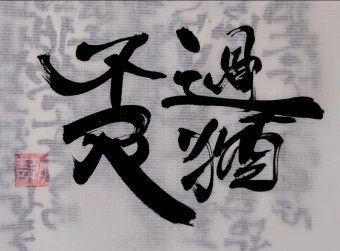 過猶
不及